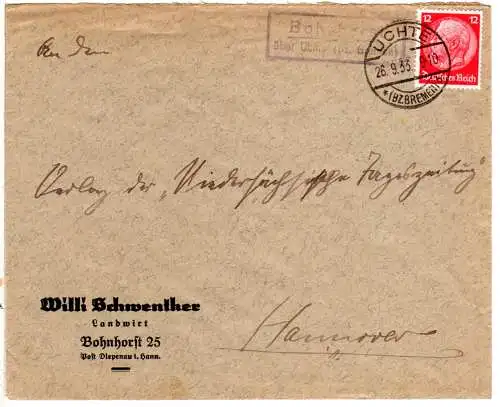 An den
Boh
über Uchte (Bz. Bremen)
UCHTE
26.9.35. 9-10
* (BZ. BREMEN)
12 12
Deutsches Reich
Verlag der „Niedersächsische Tageszeitung"
Willi Schwenther
Landwirt
Bohnhorst 25
Post Diepenau i. Hann.
Hannover